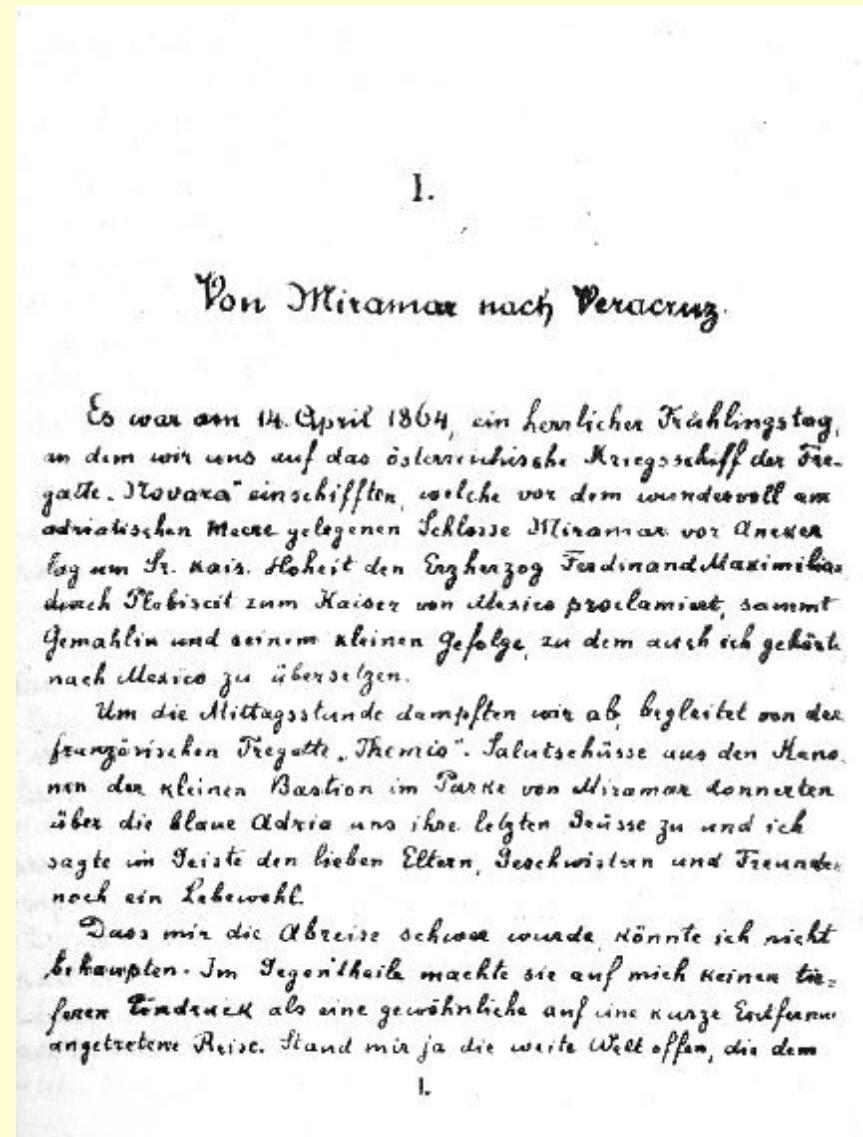 I.
Von Miramar nach Veracruz.
Es war am 14. April 1864, ein herrlicher Frühlingstag,
an dem wir uns auf das österreichische Kriegsschiff der Fre-
gatte „Novara" einschifften, welche vor dem wundervoll am
adriatischen Meere gelegenen Schlosse Miramar vor Anker
lag um Sr. Kais. Hoheit den Erzherzog Ferdinand Maximilian
durch Plebiscit zum Kaiser von Mexico proclamiert, sammt
Gemahlin und seinem kleinen Gefolge, zu dem auch ich gehörte
nach Mexico zu übersetzen.
Um die Mittagsstunde dampften wir ab, begleitet von der
französischen Fregatte „Themis". Salutschüsse aus den Kano-
nen der kleinen Bastion im Parke von Miramar donnerten
über die blaue Adria uns ihre letzten Grüsse zu und ich
sagte im Geiste den lieben Eltern, Geschwistern und Freunden
noch ein Lebewohl.
Dass mir die Abreise schwer wurde, könnte ich nicht
behaupten. Im Gegentheile machte sie auf mich keinen tie-
feren Eindruck als eine gewöhnliche auf eine kurze Entfernung
angetretene Reise. Stand mir ja die weite Welt offen, die dem
1.